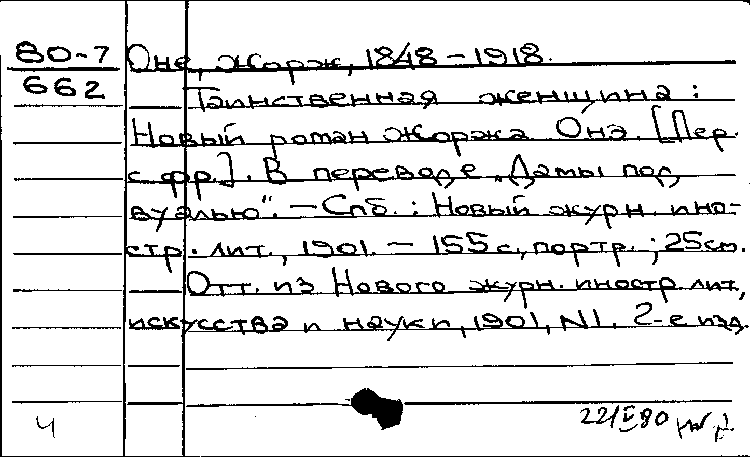 80-7 Оне, Жорж, 1848-1918.
662 Таинственная женщина:
Новый роман Жоржа Онэ. [Пер.
с фр.]. В переводе „Дамы под
вуалью". - Спб.: Новый журн. ино-
стр. лит., 1901. - 155 с., портр.; 25 см.
Отт. из Нового журн. иностр. лит.,
искусства и науки, 1901, N1. 2-е изд.
Ч 22/II 80